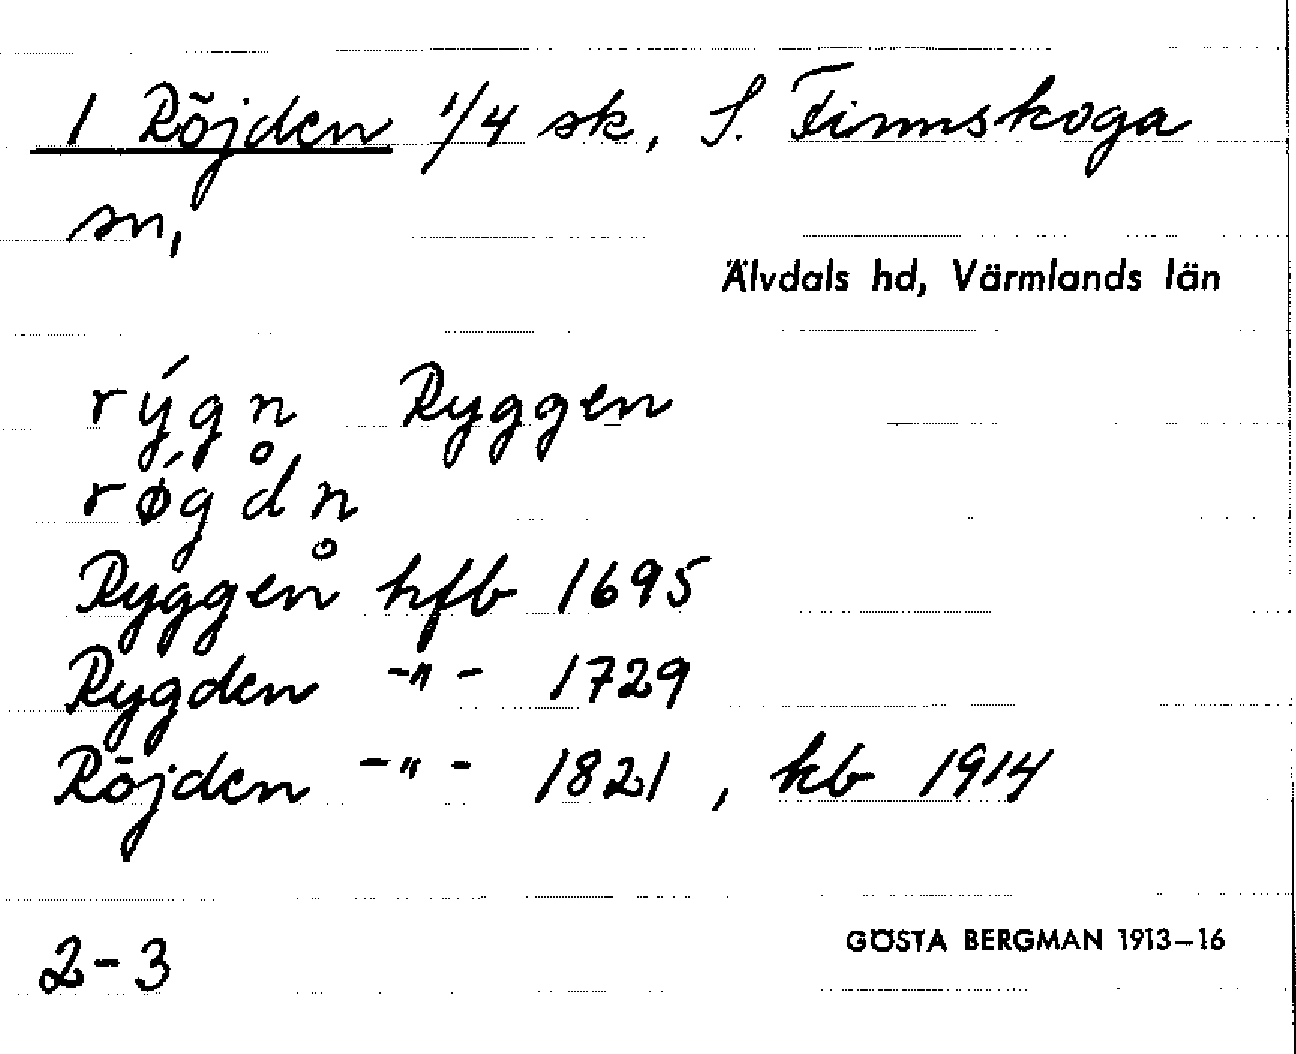 1 Röjden 1/4 sk, S. Finnskoga
sn,
Älvdals hd, Värmlands län
rýgn̥ Ryggen
rǿgdn̥
Ryggen hfb 1695
Rygden -"- 1729
Röjden -"- 1821, kb 1914
2-3
GÖSTA BERGMAN 1913-16